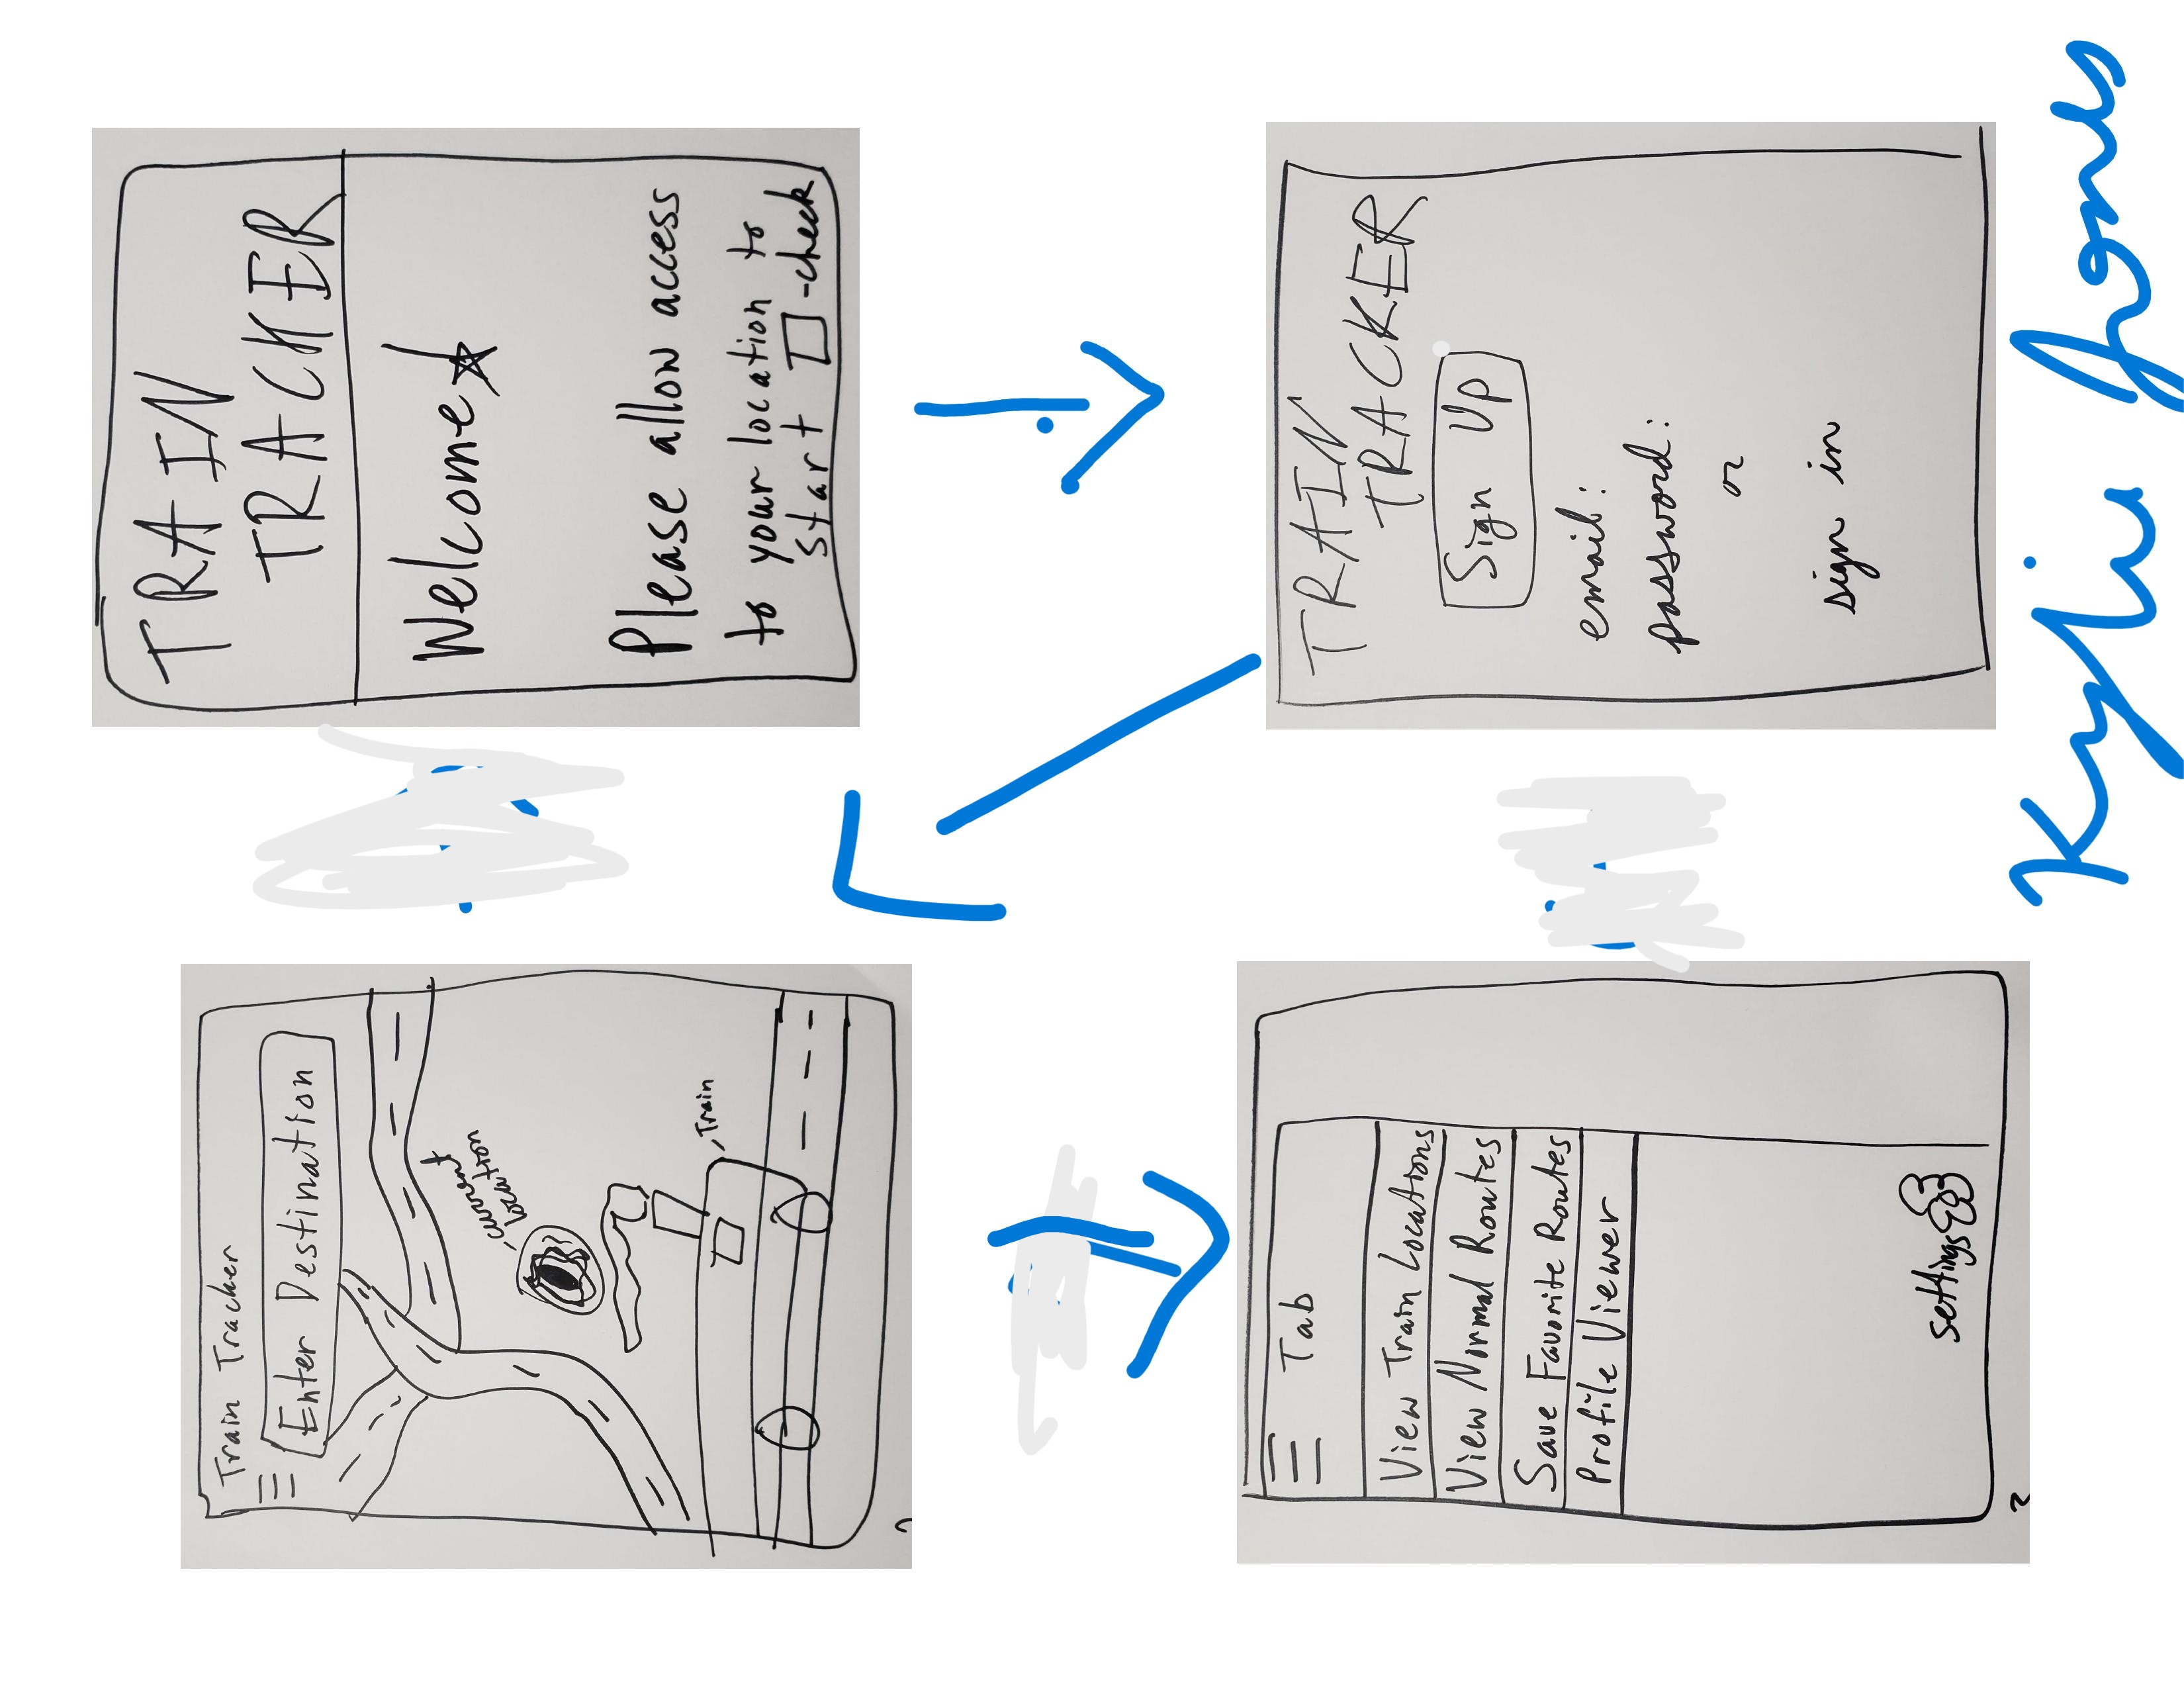 Train Tracker
Enter Destination
current
location
Train
TRAIN
TRACKER
Welcome
Please allow access
to your location to
start □ -check
Tab
View Train Locations
View Normal Routes
Save Favorite Routes
Profile Viewer
settings
TRAIN
TRACKER
Sign Up
email:
password:
or
sign in
Kylie Jones